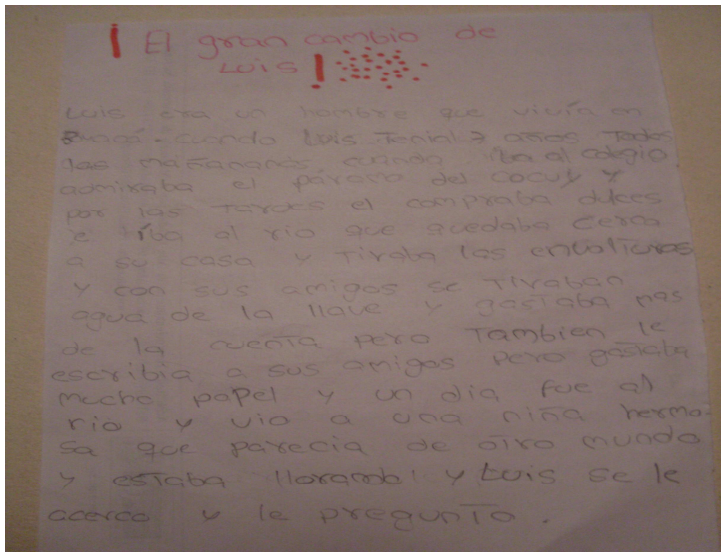 ¡ El gran cambio de
Luis !
Luis era un hombre que vivía en
cuando Luis Tenia 7 años Todos
las mañananas cuando iba al colegio
admiraba el páramo del cocuy y
por las Tardes el compraba dulces
e íba al rio que quedaba cerca
a su casa y Tiraba las envolturas
y con sus amigos se Tiraban
agua de la llave y gastaba mas
de la cuenta pero Tambien le
escribia a sus amigos pero gastaba
mucho papel y un dia fue al
rio y vio a una niña hermo-
sa que parecia de otro mundo
y estaba y Luis se le
acerco y le pregunto.